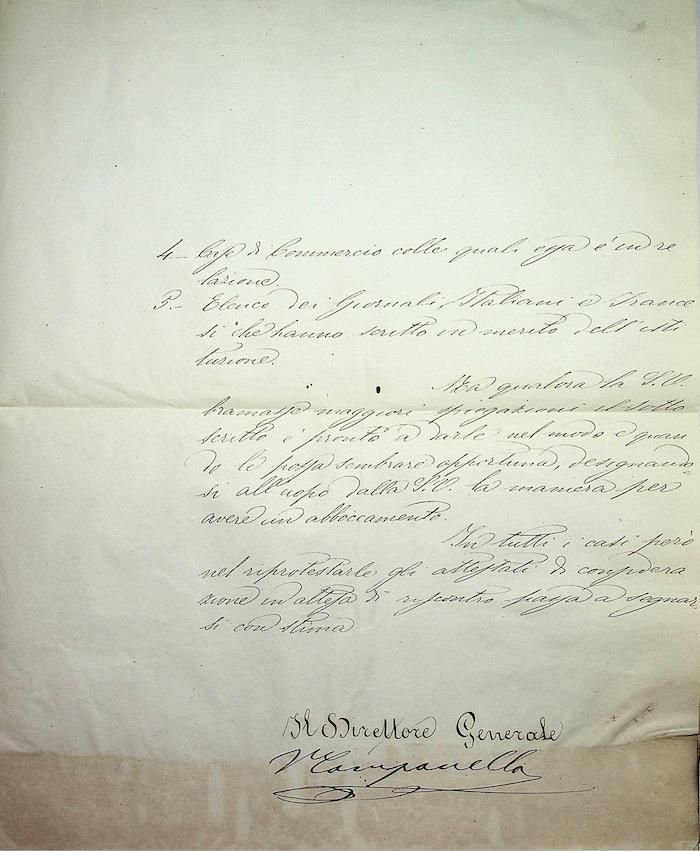 4.- Case di Commercio colle quali essa è in re
lazione.
5.- Elenco dei Giornali Italiani e France
si che hanno scritto in merito dell'isti
tuzione.
Ma qualora la S.V.
bramasse maggiori spiegazioni il sotto
scritto è pronto a darle nel modo e quan
do le possa sembrare opportuna, designando
si all'uopo dalla S.V. la maniera per
avere un abboccamento.
In tutti i casi però
nel riprotestarle gli attestati di considera
zione in attesa di riscontro passa a segnar
si con stima
Il Direttore Generale
Campanella